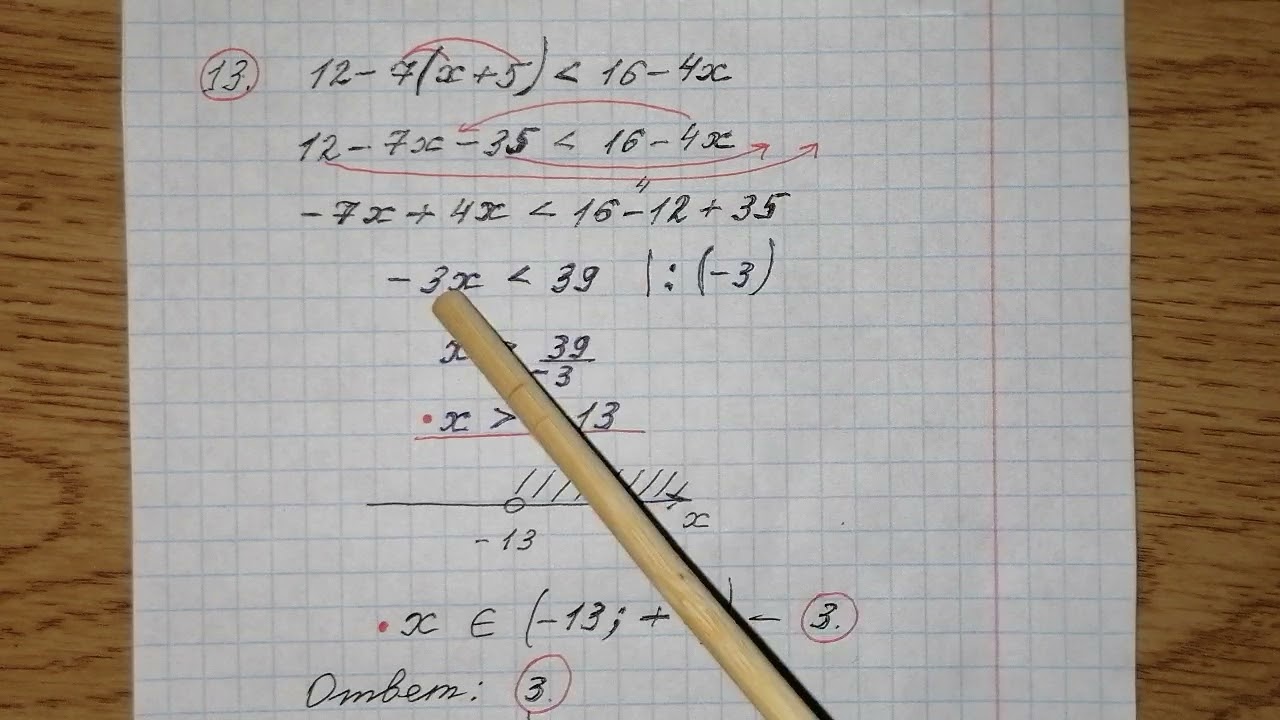 13. 12 - 7(x + 5) < 16 - 4x
12 - 7x - 35 < 16 - 4x
4
-7x + 4x < 16 - 12 + 35
-3x < 39 | : (-3)
x 39
-3
x > 13
x
-13
x ∈ (-13; + ) - 3.
Ответ: 3.